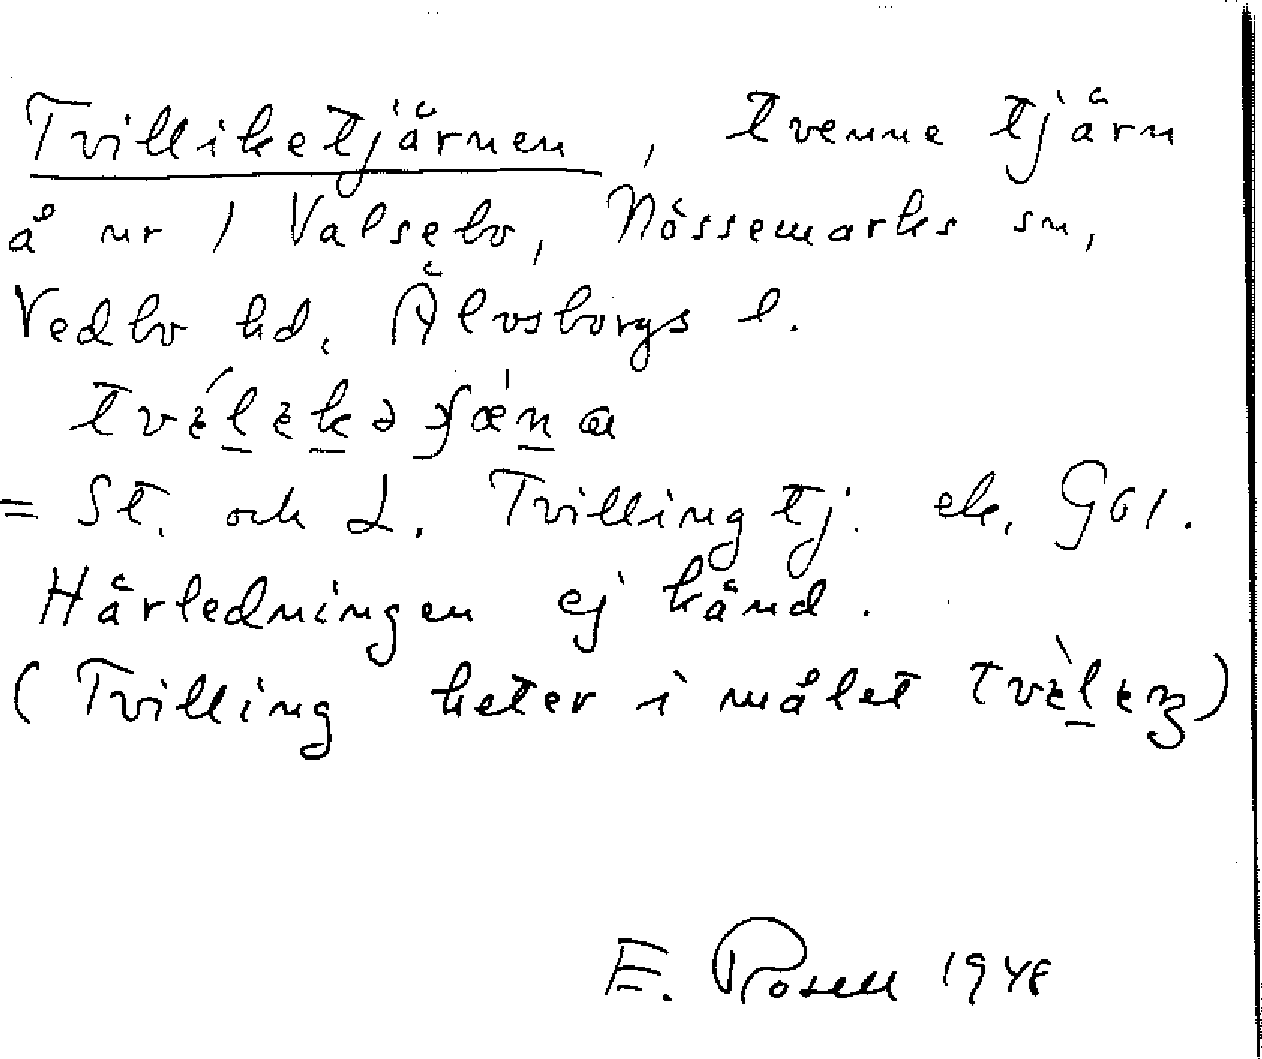 Tvilliketjärnen, tvenne tjärn
å nr 1 Valsebo, Nössemarks sn,
Vedbo hd, Älvsborgs l.
= St. och L. Tvillingtj. ek. G61.
Härledningen ej känd.
(Tvilling heter i målet
E. Rosell 1948